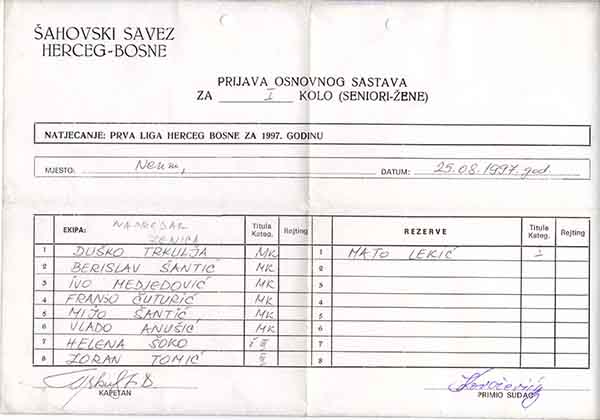 ŠAHOVSKI SAVEZ
HERCEG-BOSNE
PRIJAVA OSNOVNOG SASTAVA
ZA I KOLO (SENIORI-ŽENE)
NATJECANJE: PRVA LIGA HERCEG BOSNE ZA 1997. GODINU
MJESTO: Neum, DATUM: 25.08.1997.god.
EKIPA: NAPREDAK ZENICA Titula Kateg. Rejting REZERVE Titula Kateg. Rejting
1 DUŠKO TRKULJA MK 1 MATO LEKIĆ I
2 BERISLAV ŠANTIĆ MK 2
3 IVO MEDJEDOVIĆ MK 3
4 FRANJO ČUTURIĆ MK 4
5 MIJO ŠANTIĆ, MK 5
6 VLADO ANUŠIĆ MK 6
7 HELENA ŠOKO 7
8 ZORAN TOMIĆ 8
KAPETAN PRIMIO SUDAC